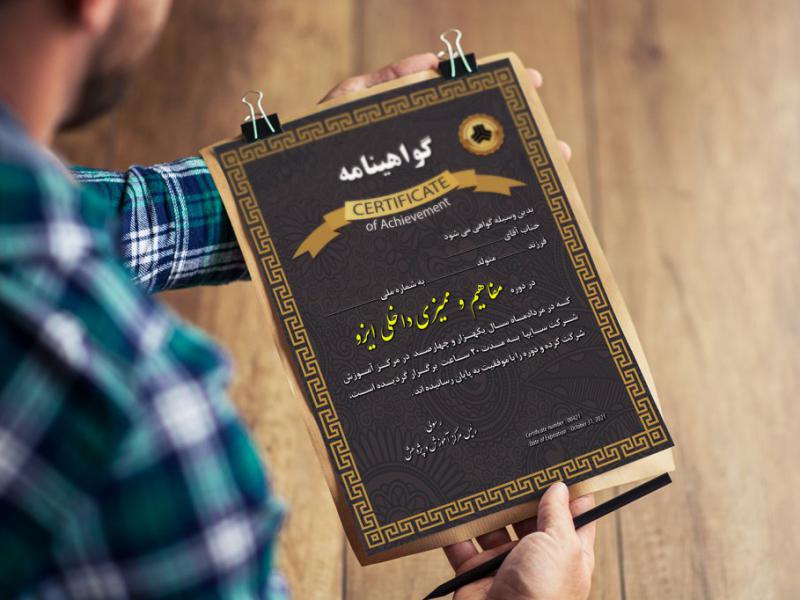 گواهینامه
CERTIFICATE
of Achievement
بدین وسیله گواهی می شود
جناب آقای
فرزند متولد به شماره ملی
در دوره مفاهیم و ممیزی داخلی ایزو
که در مردادماه سال یکهزار و چهارصد در مرکز آموزش
شرکت سایپا به مدت ۲۰ ساعت برگزار گردیده است،
شرکت کرده و دوره را با موفقیت به پایان رسانیده اند.
رسولی
رئیس مرکز آموزش و پژوهش
Certificate number : 00421
Date of Expiration : October 31, 2021